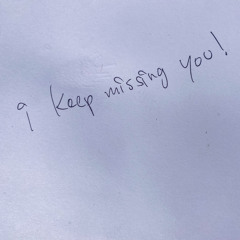 i keep missing you!